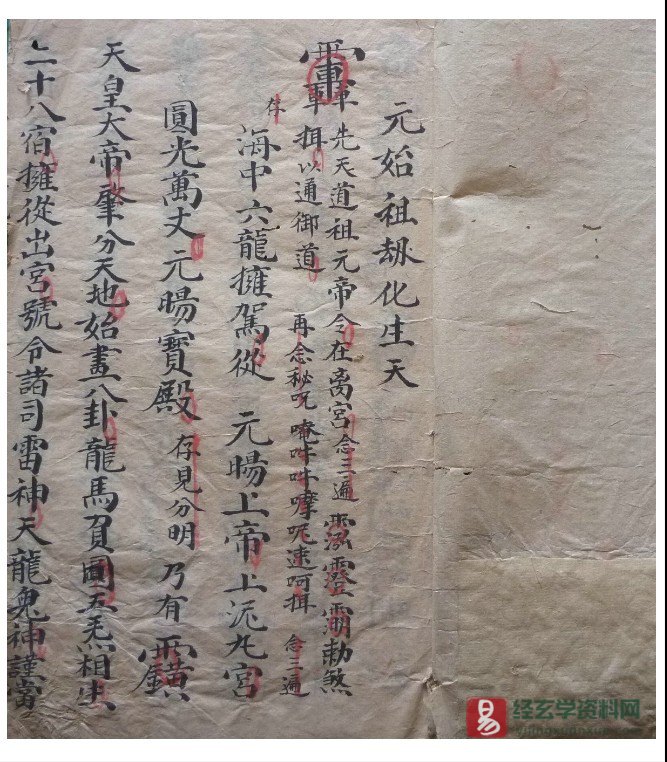 元始祖刼化生天
先天道祖元帝令在离宮念三遍勅煞
揖以通御道 再念秘咒唵吽吽㗶呢速呵揖 念三遍
存
海中六龍擁駕從 元暘上帝上泥丸宮
圓光萬丈元暘寶殿存見分明乃有
天皇大帝肇分天地始畫八卦龍馬負圖五炁相生
二十八宿擁從出宮號令諸司雷神天龍鬼神謹當
易 经玄学资料网